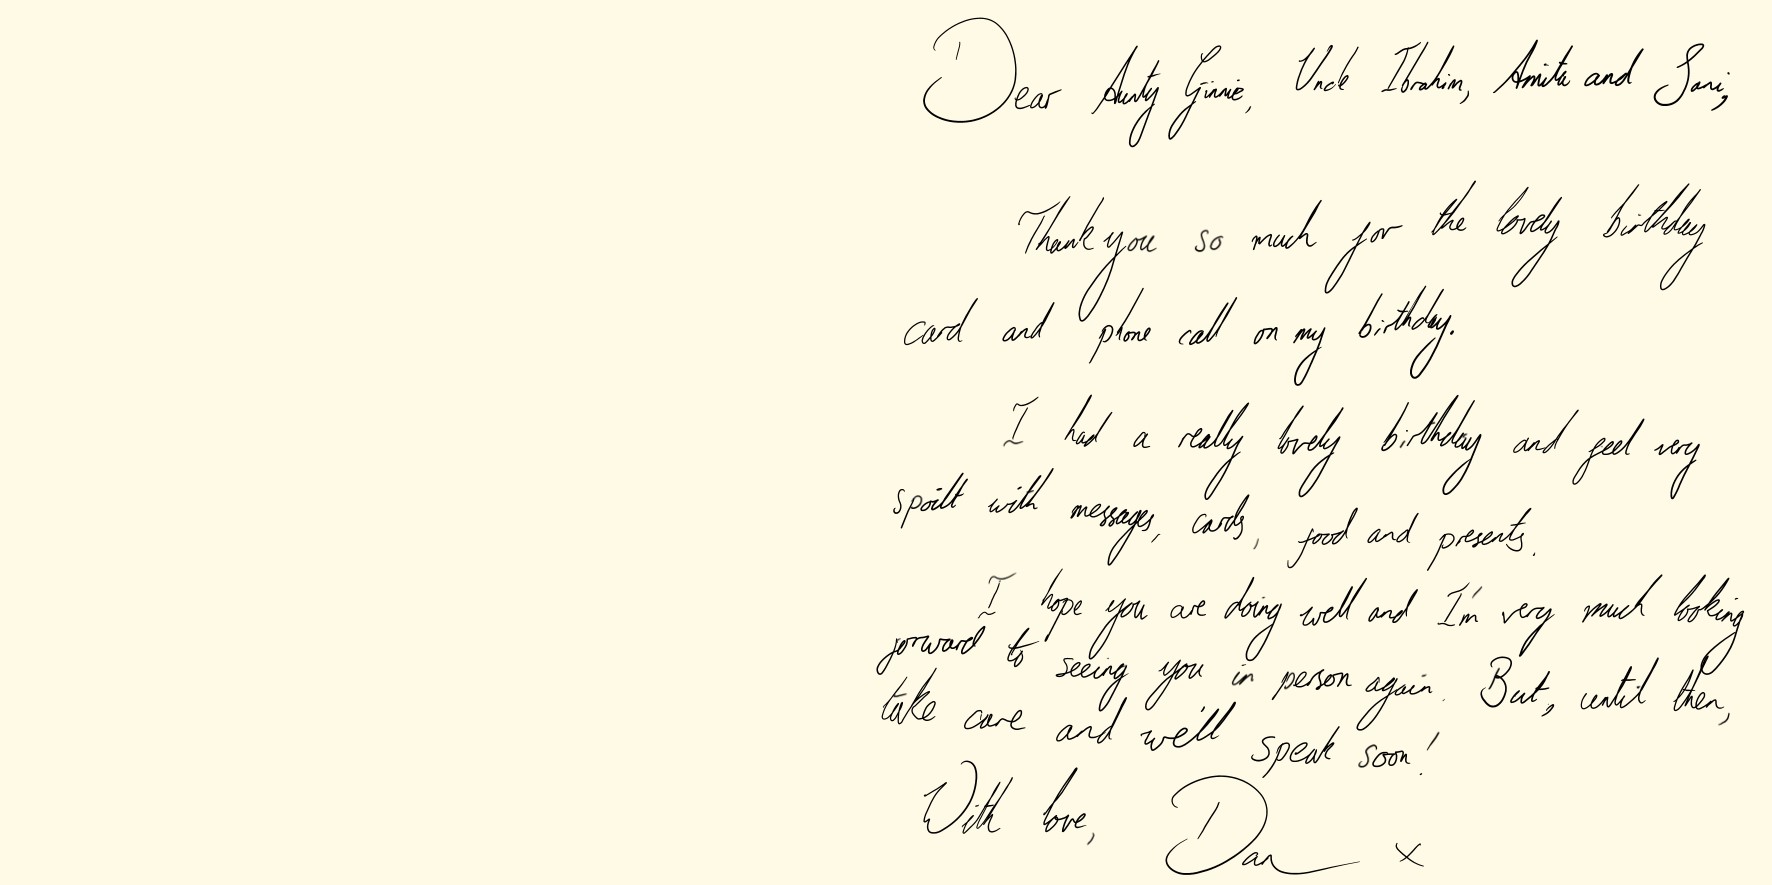 Dear Aunty Ginnie, Uncle Ibrahim, Amita and Sani,
Thank you so much for the lovely birthday
card and phone call on my birthday.
I had a really lovely birthday and feel very
spoilt with messages, cards, food and presents.
I hope you are doing well and I'm very much looking
forward to seeing you in person again. But, until then,
take care and we'll speak soon!
With love, Dan x